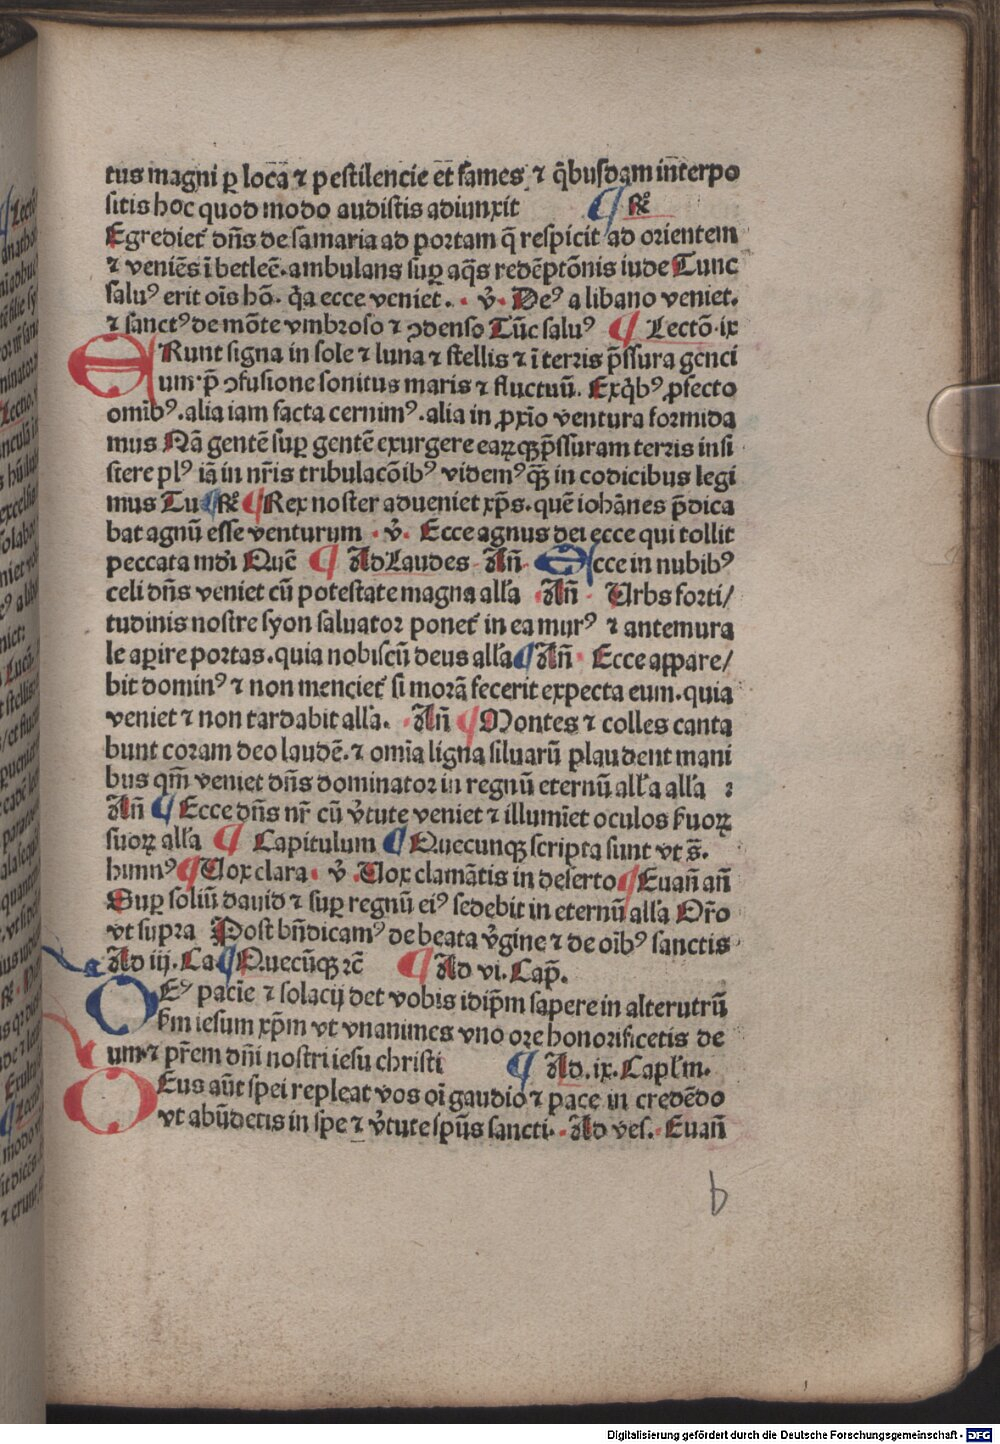 tus magni ꝑ loca᷑ ⁊ pestilencie et̄ fames ⁊ qͥbusdam inr̄terpo
sitis hoc quod modo audistis adiunxit ¶ R̷
Egrediet᷑ dn̄s de samaria ad portam q̄ respicit ad orientem
⁊ veniēs ī betleē. ambulans suꝑ aq̄s redēptōnis iude Tunc
salu⁹ erit oīs hō. qͥa ecce veniet. . v̓. De⁹ a libano veniet.
⁊ sanct⁹ de mōte vmbroso ⁊ ꝯdenso Tūc salu⁹ ¶ Lectō. ix
ERunt signa in sole ⁊ luna ⁊ stellis ⁊ ī terris p̄ssura genci
um. p̄ ꝯfusione sonitus maris ⁊ fluctuū. Exqͥb⁹ ꝓfecto
omīb⁹. alia iam facta cernim⁹. alia in ꝓxīo ventura formida
mus Nā gentē suꝑ gentē exurgere earꝜ qꝫ p̄ssuram terris insi
stere pl⁹ iā in nr̄is tribulacōib⁹ videm⁹ qꝫ̄ in codicibus legi
mus Tu ¶ R̷ ¶ Rex noster adueniet xp̄s. quē iohānes p̄dica
bat agnū esse venturum . v̓. Ecce agnus dei ecce qui tollit
peccata mdi̓ Quē ¶ Ad Laudes An̄ Ecce in nubib⁹
celi dn̄s veniet cū potestate magna all̄a An̄ Urbs forti/
tudinis nostre syon saluator ponet᷑ in ea mur⁹ ⁊ antemura
le aperire portas. quia nobiscū deus all̄a ¶ An̄ Ecce appare/
bit domin⁹ ⁊ non menciet᷑ si morā fecerit expecta eum. quia
veniet ⁊ non tardabit all̄a. An̄ ¶ Montes ⁊ colles canta
bunt coram deo laudē. ⁊ omīa ligna siluarū plaudent mani
bus qm̄ veniet dn̄s dominator in regnū eternū all̄a all̄a :
An̄ ¶ Ecce dn̄s nr̄ cū v̓tute veniet ⁊ illumīet oculos ẜuoꝝ
suoꝝ all̄a ¶ Capitulum ¶ Quecunqꝫ scripta sunt vt s̄.
himn⁹ ¶ Vox clara. v̓ . Vox clamātis in deserto ¶ Euan̄ an̄
Suꝑ soliū dauid ⁊ suꝑ regnū ei⁹ sedebit in eternū all̄a Or̄o
vt supra Post bn̄dicam⁹ de beata v̓gine ⁊ de oīb⁹ sanctis
Ad iij. Ca ¶ Quecūqꝫ ⁊c̄ ¶ Ad vi. Cap̄.
DE⁹ pacīe ⁊ solacij det vobis idip̄m sapere in alterutrū
ẜm iesum xp̄m vt vnanimes vno ore honorificetis de
um ⁊ pr̄em dn̄i nostri iesu christi ¶ Ad. ix. Capl̄m.
DEus aūt spei repleat vos oī gaudio ⁊ pace in credēdo
vt abūdetis in spe ⁊ v̓tute spūs sancti. Ad ves. Euan̄
b
Digitalisierung gefördert durch die Deutsche Forschungsgemeinschaft - DFG